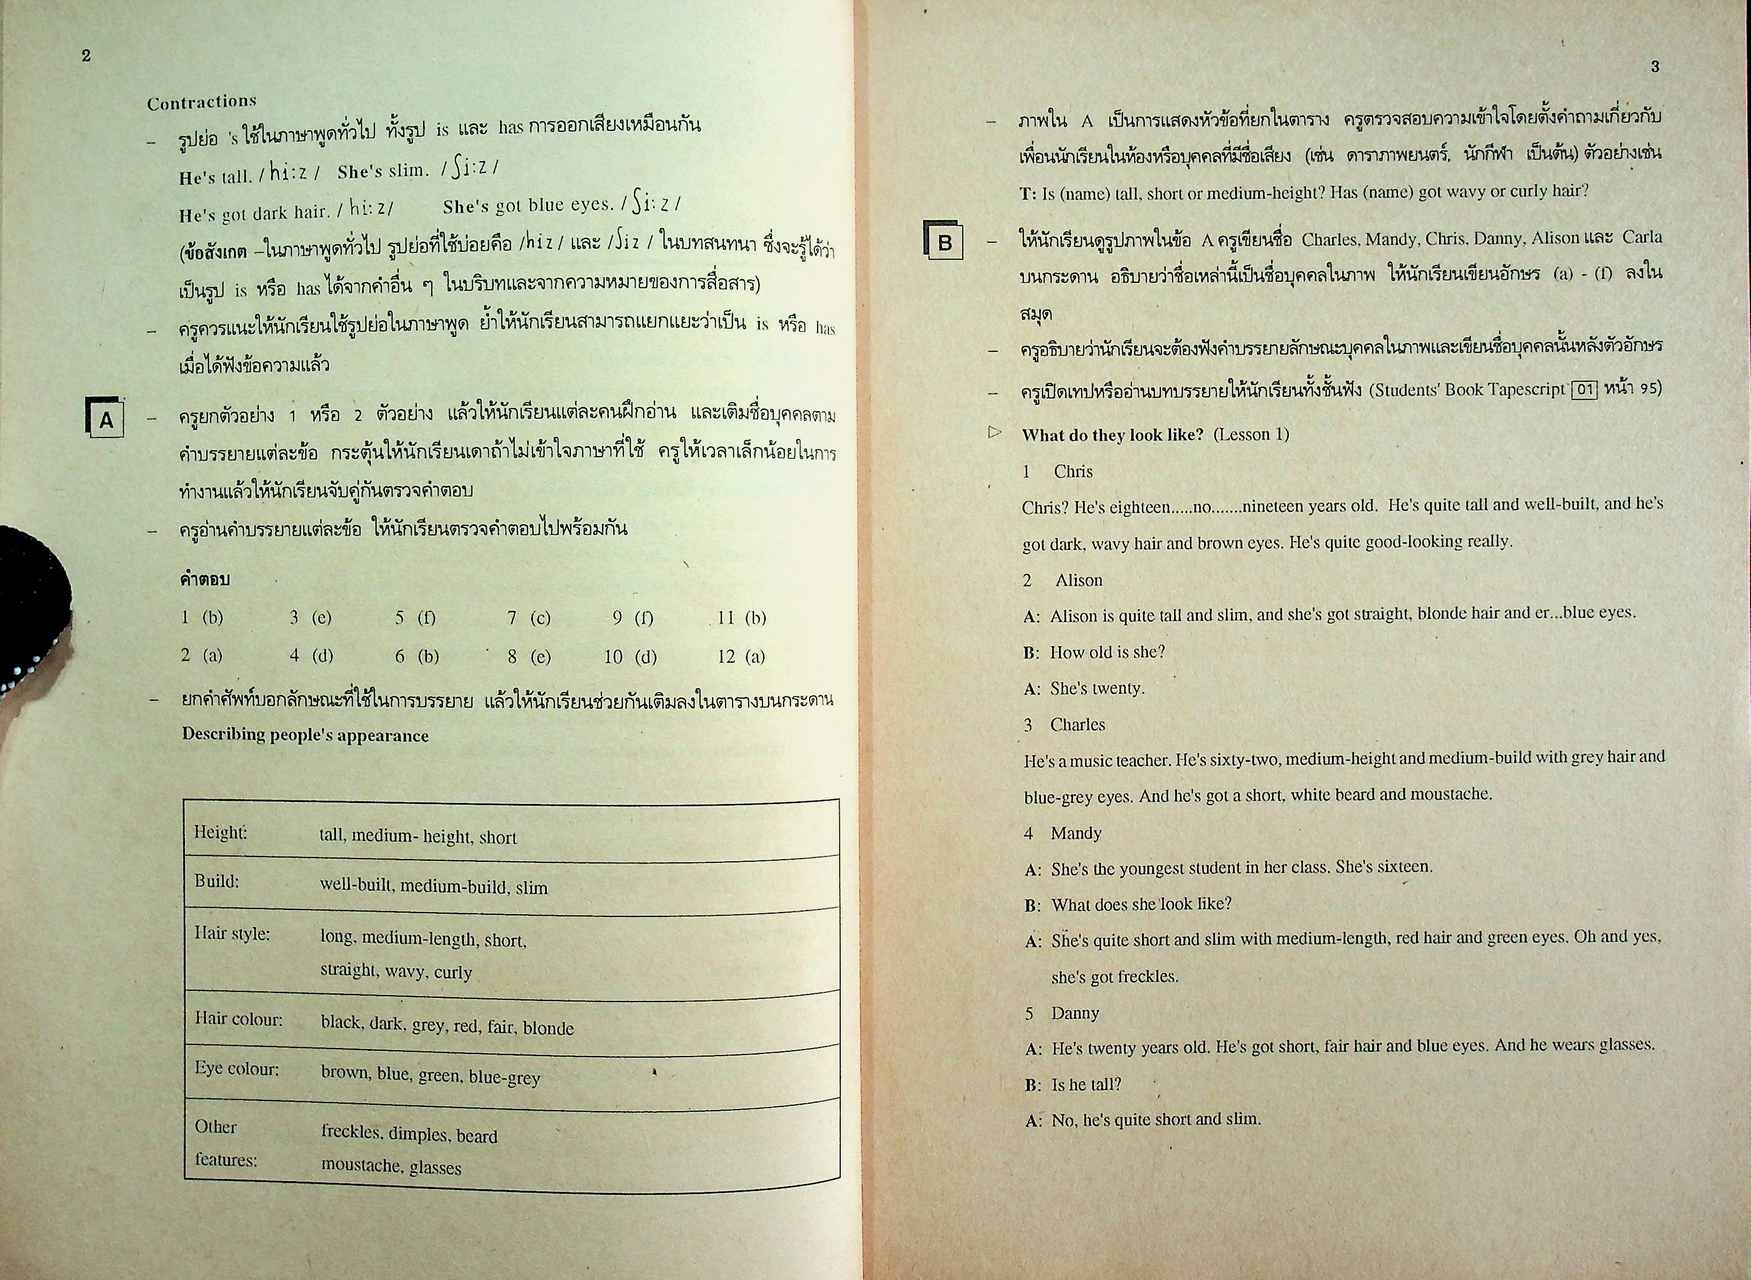 2
Contractions
– รูปย่อ 's ใช้ในภาษาพูดทั่วไป ทั้งรูป is และ has การออกเสียงเหมือนกัน
He's tall. /hi:z/ She's slim. /ʃi:z/
He's got dark hair. /hi:z/ She's got blue eyes. /ʃi:z/
(ข้อสังเกต –ในภาษาพูดทั่วไป รูปย่อที่ใช้บ่อยคือ /hiz/ และ /ʃiz/ ในบทสนทนา ซึ่งจะรู้ได้ว่า
เป็นรูป is หรือ has ได้จากคำอื่น ๆ ในบริบทและจากความหมายของการสื่อสาร)
– ครูควรแนะให้นักเรียนใช้รูปย่อในภาษาพูด ย้ำให้นักเรียนสามารถแยกแยะว่าเป็น is หรือ has
เมื่อได้ฟังข้อความแล้ว
A – ครูยกตัวอย่าง 1 หรือ 2 ตัวอย่าง แล้วให้นักเรียนแต่ละคนฝึกอ่าน และเติมชื่อบุคคลตาม
คำบรรยายแต่ละข้อ กระตุ้นให้นักเรียนเดาถ้าไม่เข้าใจภาษาที่ใช้ ครูให้เวลาเล็กน้อยในการ
ทำงานแล้วให้นักเรียนจับคู่กันตรวจคำตอบ
– ครูอ่านคำบรรยายแต่ละข้อ ให้นักเรียนตรวจคำตอบไปพร้อมกัน
คำตอบ
1 (b) 3 (e) 5 (f) 7 (c) 9 (f) 11 (b)
2 (a) 4 (d) 6 (b) 8 (e) 10 (d) 12 (a)
– ยกคำศัพท์บอกลักษณะที่ใช้ในการบรรยาย แล้วให้นักเรียนช่วยกันเติมลงในตารางบนกระดาน
Describing people's appearance
Height: tall, medium- height, short
Build: well-built, medium-build, slim
Hair style: long, medium-length, short,
straight, wavy, curly
Hair colour: black, dark, grey, red, fair, blonde
Eye colour: brown, blue, green, blue-grey
Other freckles, dimples, beard
features: moustache, glasses
3
– ภาพใน A เป็นการแสดงหัวข้อที่ยกในตาราง ครูตรวจสอบความเข้าใจโดยตั้งคำถามเกี่ยวกับ
เพื่อนนักเรียนในห้องหรือบุคคลที่มีชื่อเสียง (เช่น ดาราภาพยนตร์, นักกีฬา เป็นต้น) ตัวอย่างเช่น
T: Is (name) tall, short or medium-height? Has (name) got wavy or curly hair?
B – ให้นักเรียนดูรูปภาพในข้อ A ครูเขียนชื่อ Charles, Mandy, Chris, Danny, Alison และ Carla
บนกระดาน อธิบายว่าชื่อเหล่านี้เป็นชื่อบุคคลในภาพ ให้นักเรียนเขียนอักษร (a) - (f) ลงใน
สมุด
– ครูอธิบายว่านักเรียนจะต้องฟังคำบรรยายลักษณะบุคคลในภาพและเขียนชื่อบุคคลนั้นหลังตัวอักษร
– ครูเปิดเทปหรืออ่านบทบรรยายให้นักเรียนทั้งชั้นฟัง (Students' Book Tapescript 01 หน้า 95)
▷ What do they look like? (Lesson 1)
1 Chris
Chris? He's eighteen.....no.......nineteen years old. He's quite tall and well-built, and he's
got dark, wavy hair and brown eyes. He's quite good-looking really.
2 Alison
A: Alison is quite tall and slim, and she's got straight, blonde hair and er...blue eyes.
B: How old is she?
A: She's twenty.
3 Charles
He's a music teacher. He's sixty-two, medium-height and medium-build with grey hair and
blue-grey eyes. And he's got a short, white beard and moustache.
4 Mandy
A: She's the youngest student in her class. She's sixteen.
B: What does she look like?
A: She's quite short and slim with medium-length, red hair and green eyes. Oh and yes,
she's got freckles.
5 Danny
A: He's twenty years old. He's got short, fair hair and blue eyes. And he wears glasses.
B: Is he tall?
A: No, he's quite short and slim.